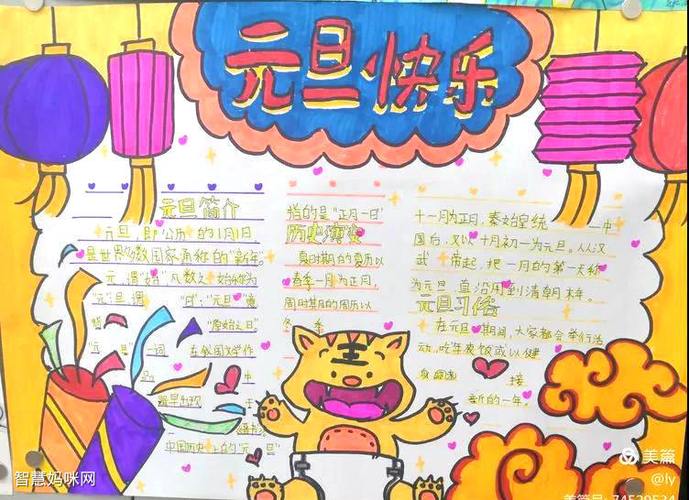 元旦快乐
元旦简介
元旦，即公历的1月1日
是世界多数国家通称的“新年。
元，谓“始”凡数之始称为
“元”旦谓 “日”；“元旦”意
“原始之日”
“元旦”一词
最早出现 于
中国历史上的“元旦”
指的是“正月一日”
历史演变
夏时期的夏历以
春季一月为正月，
周时期的周历以
冬季
十一月为正月，秦始皇统一中
国后，又以十月初一为元旦。从汉
武帝起，把一月的第一天称
为元旦，一直沿用到清朝末年。
元旦习俗
在元旦期间，大家都会举行活
动，吃年夜饭或以健
身 迎接
新的一年。
智慧妈咪网
美篇
@ly
美篇号:74529534